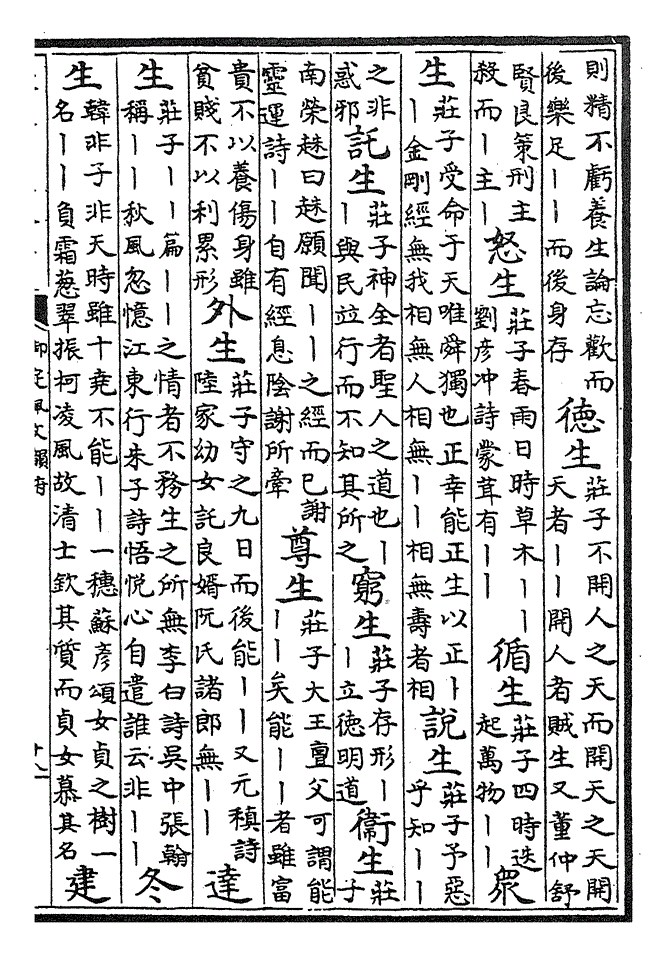 則精不虧養生論忘歡而
後樂足丨丨而後身存
德生
莊子不開人之天而開天之天開
天者丨丨開人者賊生又董仲舒
賢良策刑主
殺而丨主丨
怒生
莊子春雨日時草木丨丨
劉彥冲詩蒙茸有丨丨
循生
莊子四時迭
起萬物丨丨
衆
生
莊子受命于天唯舜獨也正幸能正生以正丨
丨金剛經無我相無人相無丨丨相無壽者相
說生
莊子予惡
乎知丨丨
之非
惑邪
託生
莊子神全者聖人之道也丨
丨與民竝行而不知其所之
窮生
莊子存形丨
丨立德明道
衞生
莊
子
南榮趎曰趎願聞丨丨之經而已謝
靈運詩丨丨自有經息陰謝所牽
尊生
莊子大王亶父可謂能
丨丨矣能丨丨者雖富
貴不以養傷身雖
貧賤不以利累形
外生
莊子守之九日而後能丨丨又元稹詩
陸家幼女託良婿阮氏諸郎無丨丨
達
生
莊子丨丨篇丨丨之情者不務生之所無李白詩吳中張翰
稱丨丨秋風忽憶江東行朱子詩悟悅心自遣誰云非丨丨
冬
生
韓非子非天時雖十堯不能丨丨一穗蘇彥頌女貞之樹一
名丨丨負霜葱翠振柯凌風故清士欽其質而貞女慕其名
建